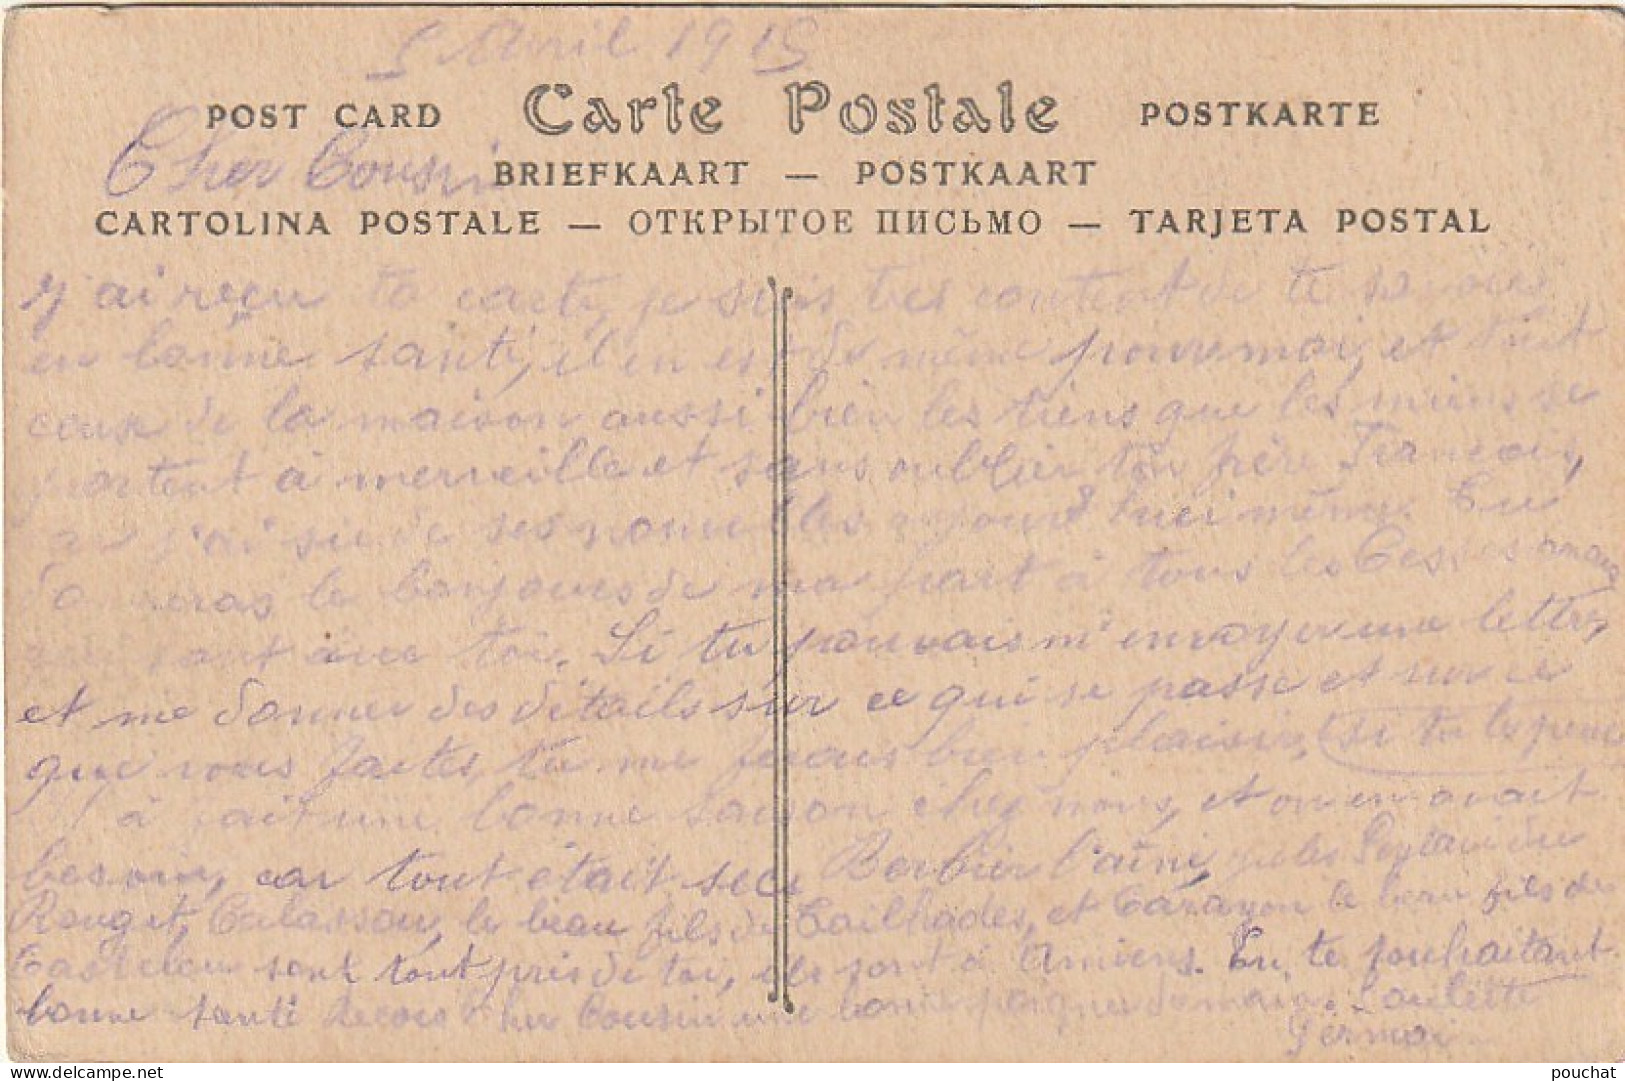 5 Avril 1915
POST CARD Carte Postale POSTKARTE
Cher Cousin
BRIEFKAART — POSTKAART
CARTOLINA POSTALE — ОТКРЫТОЕ ПИСЬМО — TARJETA POSTAL
J'ai reçu ta carte, je suis tres content de te savoir
en bonne santé, il en est de même pour moi, et tout
ceux de la maison aussi bien les tiens que les miens se
portent à merveille et sans oublier ton frère François,
car j'ai su de ses nouvelles aujourd'hui même. Tu
donneras le bonjour de ma part à tous les
qui sont avec toi. Si tu pouvais m'envoyer une lettre,
et me donner des détails sur ce qui se passe et sur ce
que vous faites, tu me ferais bien plaisir, (si tu le peux)
Il à fait une bonne saison chez nous, et on en avait
besoin, car tout était sec. Berbier l'ainé, du
Rouget, Calassou, le beau fils de Lailhades, et Cazayon le beau fils de
Castelou sont tout près de toi, ils sont à Amiens. En te souhaitant
bonne santé recois cher Cousin une bonne poignée de main.
Germai
pouchat